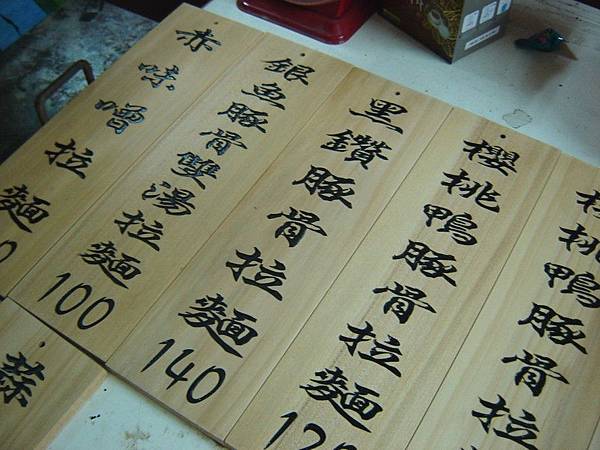 桃鴨豚骨拉
櫻桃鴨豚骨拉麵 12
黑鑽豚骨拉麵 140
銀魚豚骨雙湯拉麵 100
赤味噌拉麵 0
蒜